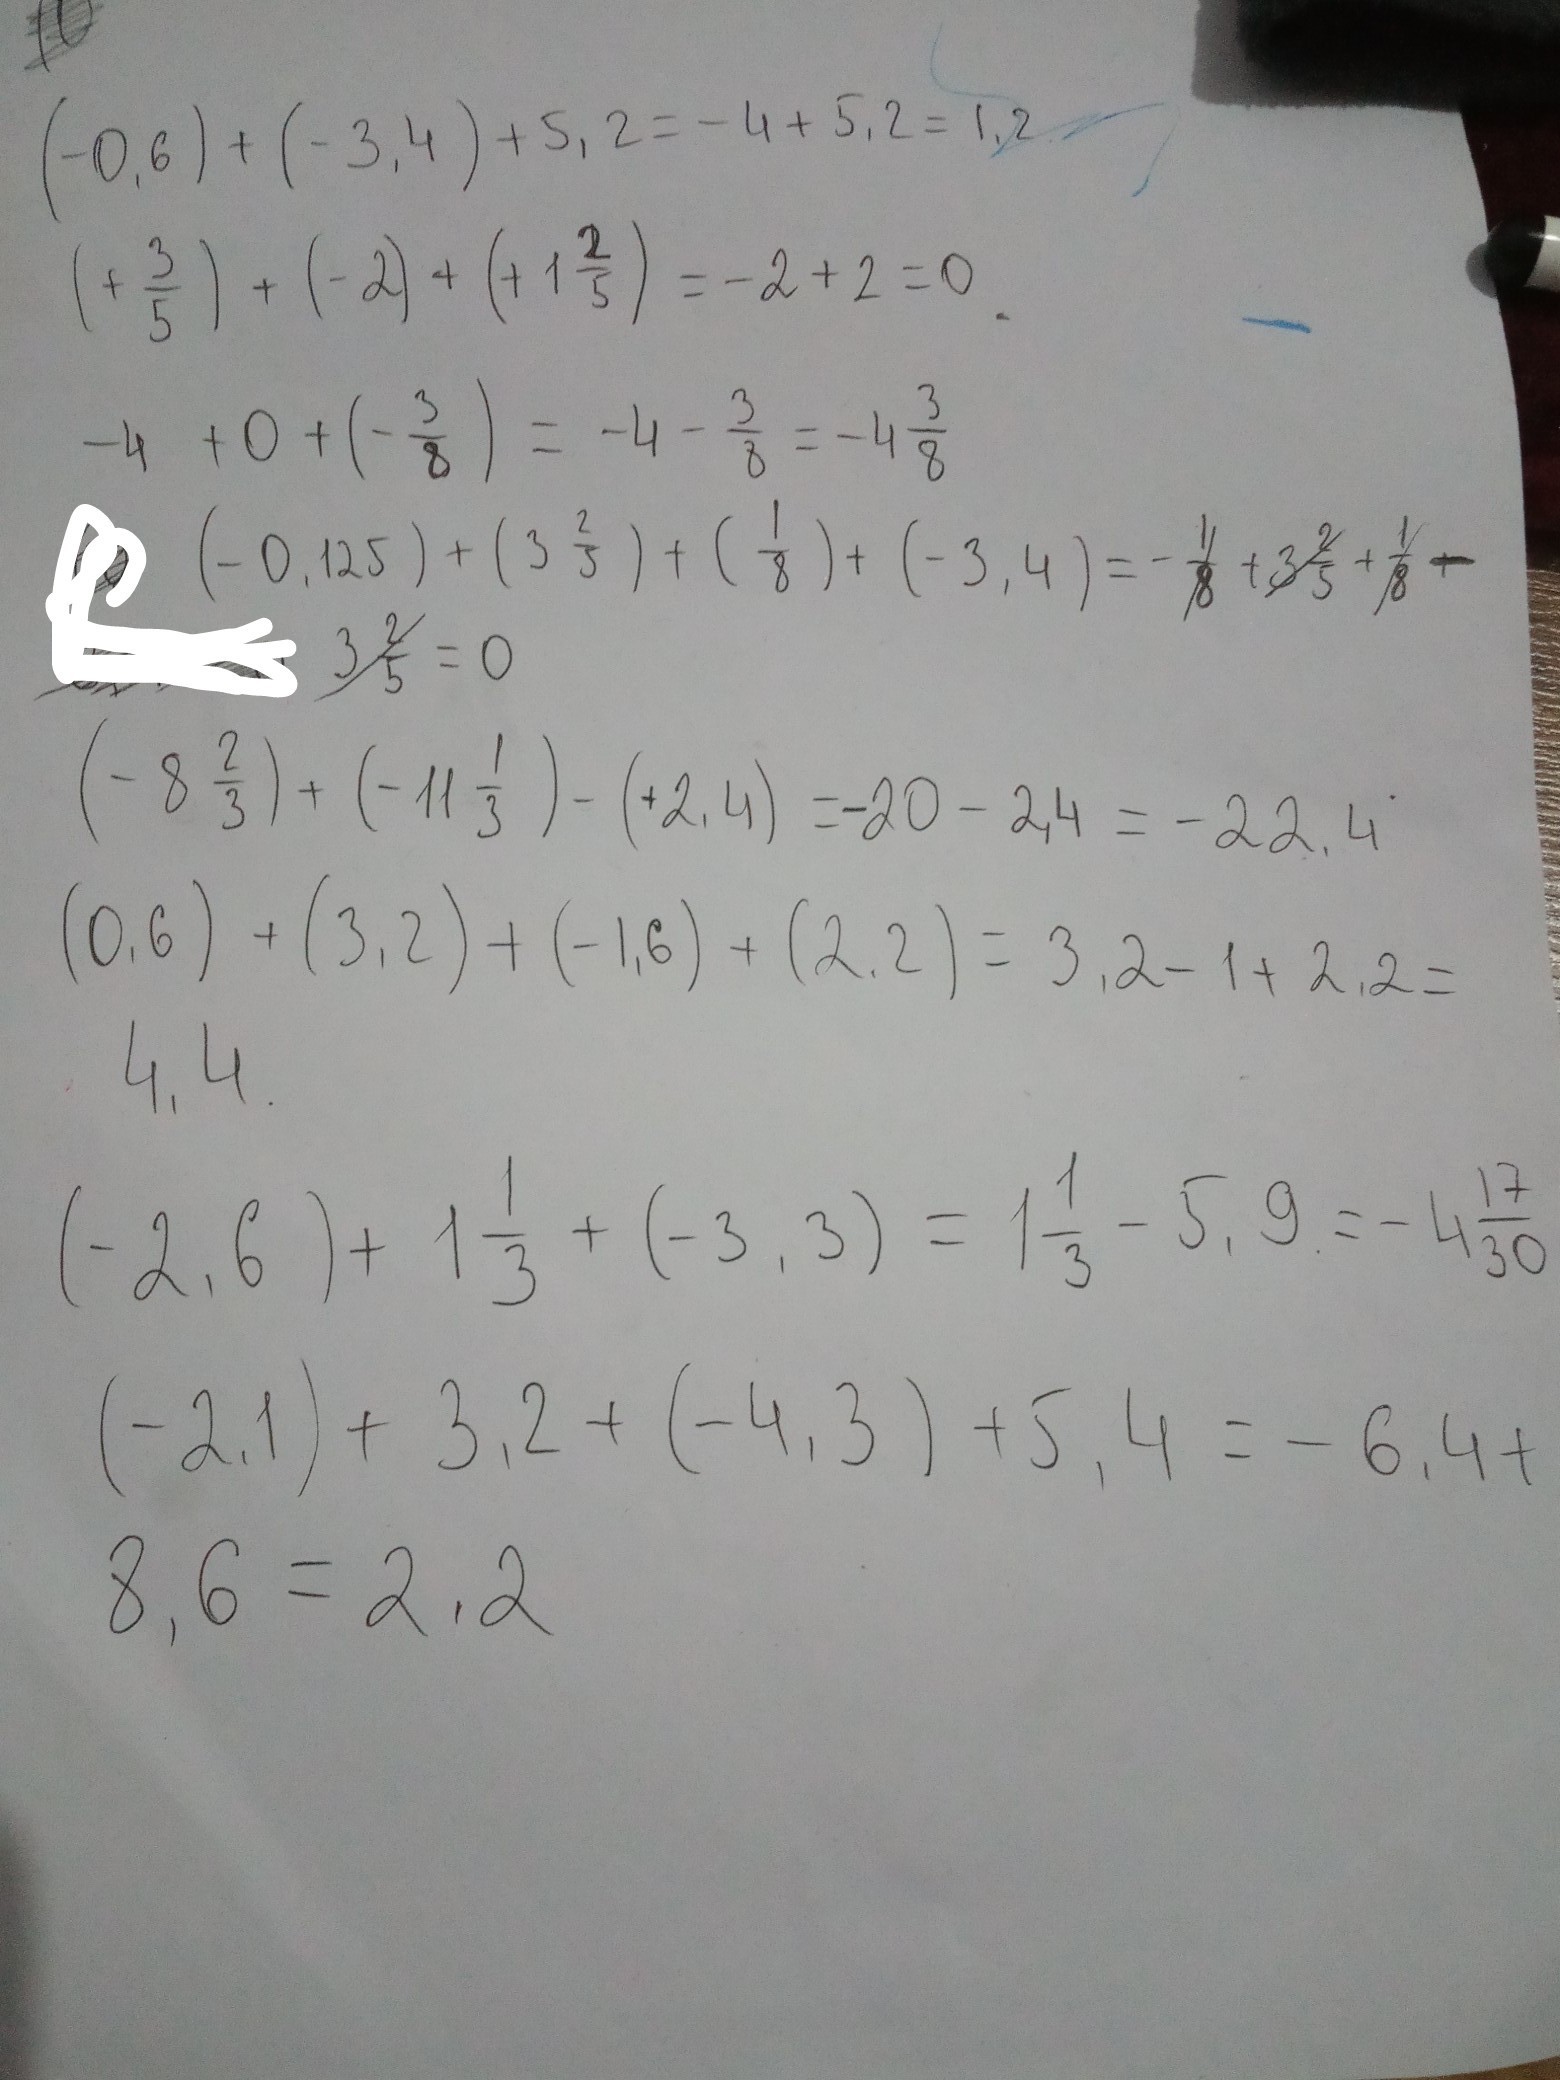 (-0,6) + (-3,4) + 5,2 = -4 + 5,2 = 1,2
(+ 3/5) + (-2) + (+1 2/5) = -2 + 2 = 0.
-4 + 0 + (- 3/8) = -4 - 3/8 = -4 3/8
(-0,125) + (3 2/5) + (1/8) + (-3,4) = - 1/8 + 3 2/5 + 1/8 -
3 2/5 = 0
(-8 2/3) + (-11 1/3) - (+2,4) = -20 - 2,4 = -22,4
(0,6) + (3,2) + (-1,6) + (2,2) = 3,2 - 1 + 2,2 =
4,4.
(-2,6) + 1 1/3 + (-3,3) = 1 1/3 - 5,9 = -4 17/30
(-2,1) + 3,2 + (-4,3) + 5,4 = -6,4 +
8,6 = 2,2